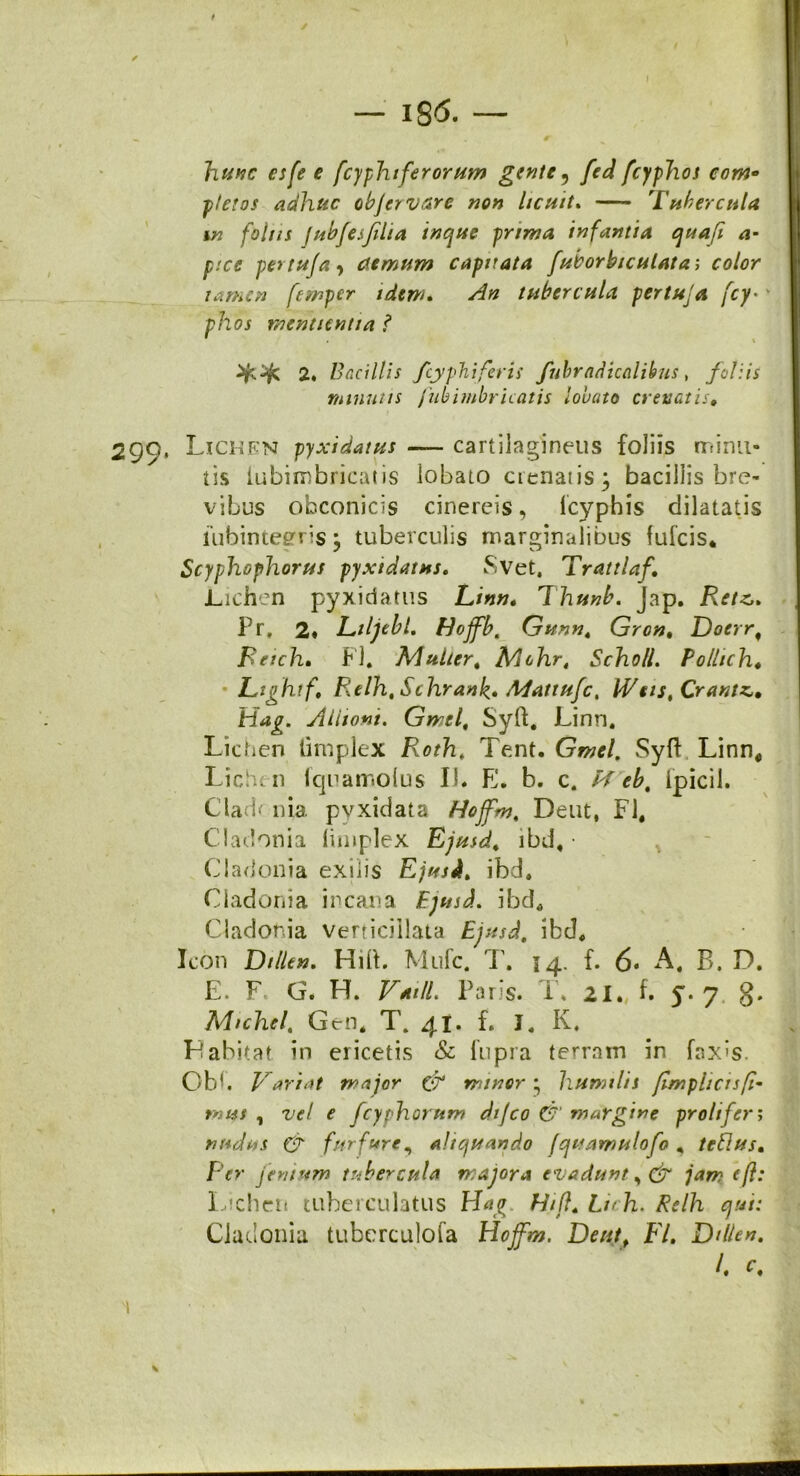 — 186. —
hunc esſe e ſcyphiferorum gente, ſed ſcyphos com-
pletos adhuc obſervare non licuit. —— Tubercula
in foliis ſubſesſilia inque prima infantia quaſi a-
pice pertuſa, demum capitata ſuborbiculata; color
tamen ſemper idem. An tubercula pertuſa ſcy-
phos mentientia?
** 2. Bacillis ſcyphiferis ſubradicalibus, foliis
minutis ſubimbricatis lobato crenatis.
299. LICHEN pyxidatus —— cartilagineus foliis minu-
tis ſubimbricatis lobato crenatis; bacillis bre-
vibus obconicis cinereis, ſcyphis dilatatis
ſubintegris; tuberculis marginalibus fuſcis.
Scyphophorus pyxidatus. Svet. Trattlaf.
Lichen pyxidatus Linn. Thunb. Jap. Retz.
Pr. 2. Liljebl. Hoffb. Gunn. Gron. Doerr.
Reich. Fl. Muller. Mohr. Scholl. Pollich.
Lightf. Relh. Schrank. Mattuſc. Weis. Crantz.
Hag. Allioni. Gmel. Syſt. Linn.
Lichen ſimplex Roth. Tent. Gmel. Syſt. Linn.
Lichen ſquamoſus II. E. b. c. Web. ſpicil.
Cladonia pyxidata Hoffm. Deut. Fl.
Cladonia ſimplex Ejusd. ibd.
Cladonia exilis Ejusd. ibd.
Cladonia incana Ejusd. ibd.
Cladonia verticillata Ejusd. ibd.
Icon Dillen. Hiſt. Muſc. T. 14. f. 6. A. B. D.
E. F. G. H. Vaill. Paris. T. 21. f. 5. 7. 8.
Michel. Gen. T. 41. f. 1. K.
Habitat in ericetis & ſupra terram in ſaxis.
Obſ. Variat major & minor; humilis ſimpliciſſi-
mus, vel e ſcyphorum diſco & margine prolifer;
nudus & furfure, aliquando ſquamuloſo, tectus.
Per ſenium tubercula majora evadunt, & jam eſt:
Lichen tuberculatus Hag. Hiſt. Lich. Relh qui:
Cladonia tuberculoſa Hoffm. Deut. Fl. Dillen.
l. c.